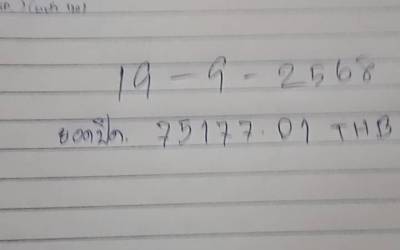 19 - 9 - 2568
ยอดปิด. 75177.01 THB